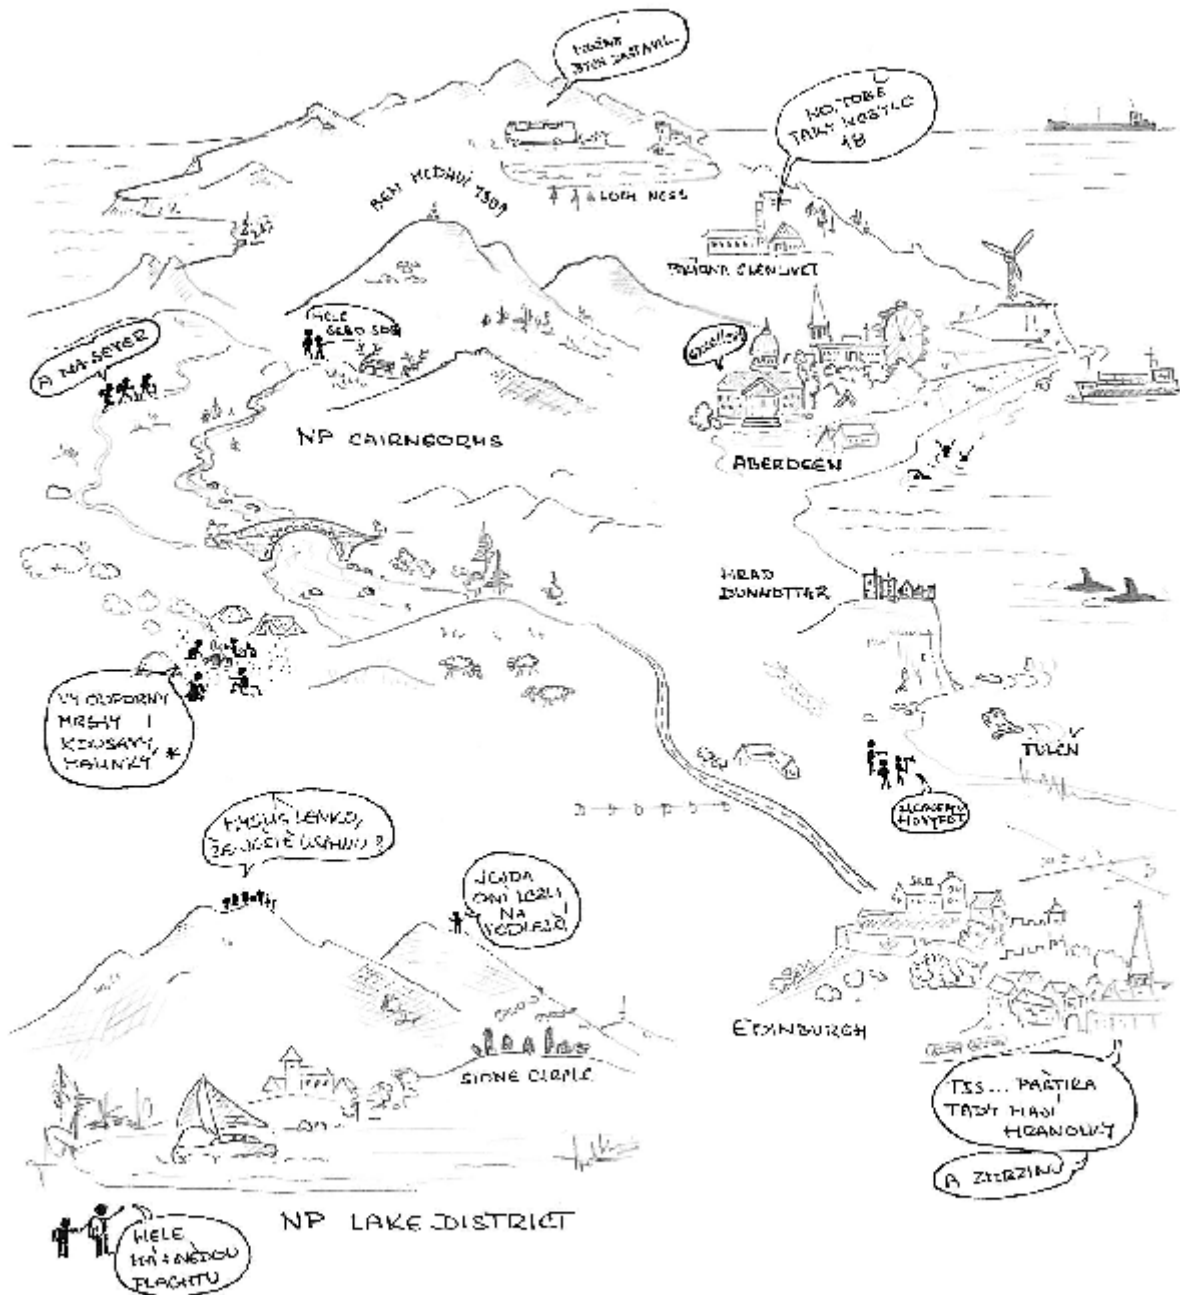 BYCH ZASTAVIL...
NO, TOBĚ
TAKY NEBYLO
18
LOCH NESS
BEN MCDHUI 1309
GLENLIVET
HELE
A NA SEVER
NP CAIRNGORMS
ABERDEEN
HRAD
DUNNOTTAR
VY ODPORNÝ
MRCHY
KOUSAVÝ,
MALINKÝ *
TULEŇ
MYSLÍŠ LENKO,
ŽE JEŠTĚ USÁHNU?
ONI LEZLI
NA
EDINBURGH
STONE CIRCLE
TSS... PAŠTIKA
TADY MAJÍ
HRANOLKY
A ZMRZLINU
NP LAKE DISTRICT
HELE
MÁ HNĚDOU
PLACHTU